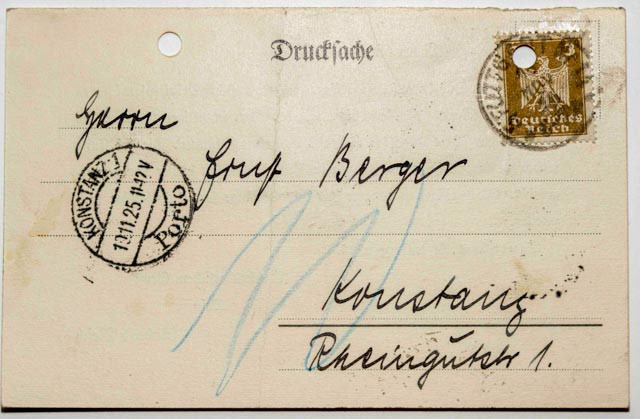 Drucksache
3
Deutsches
Reich
Herrn
Ernst Berger
KONSTANZ 1
19.11.25.11-12 V
Porto
Konstanz
Rheingutstr 1.